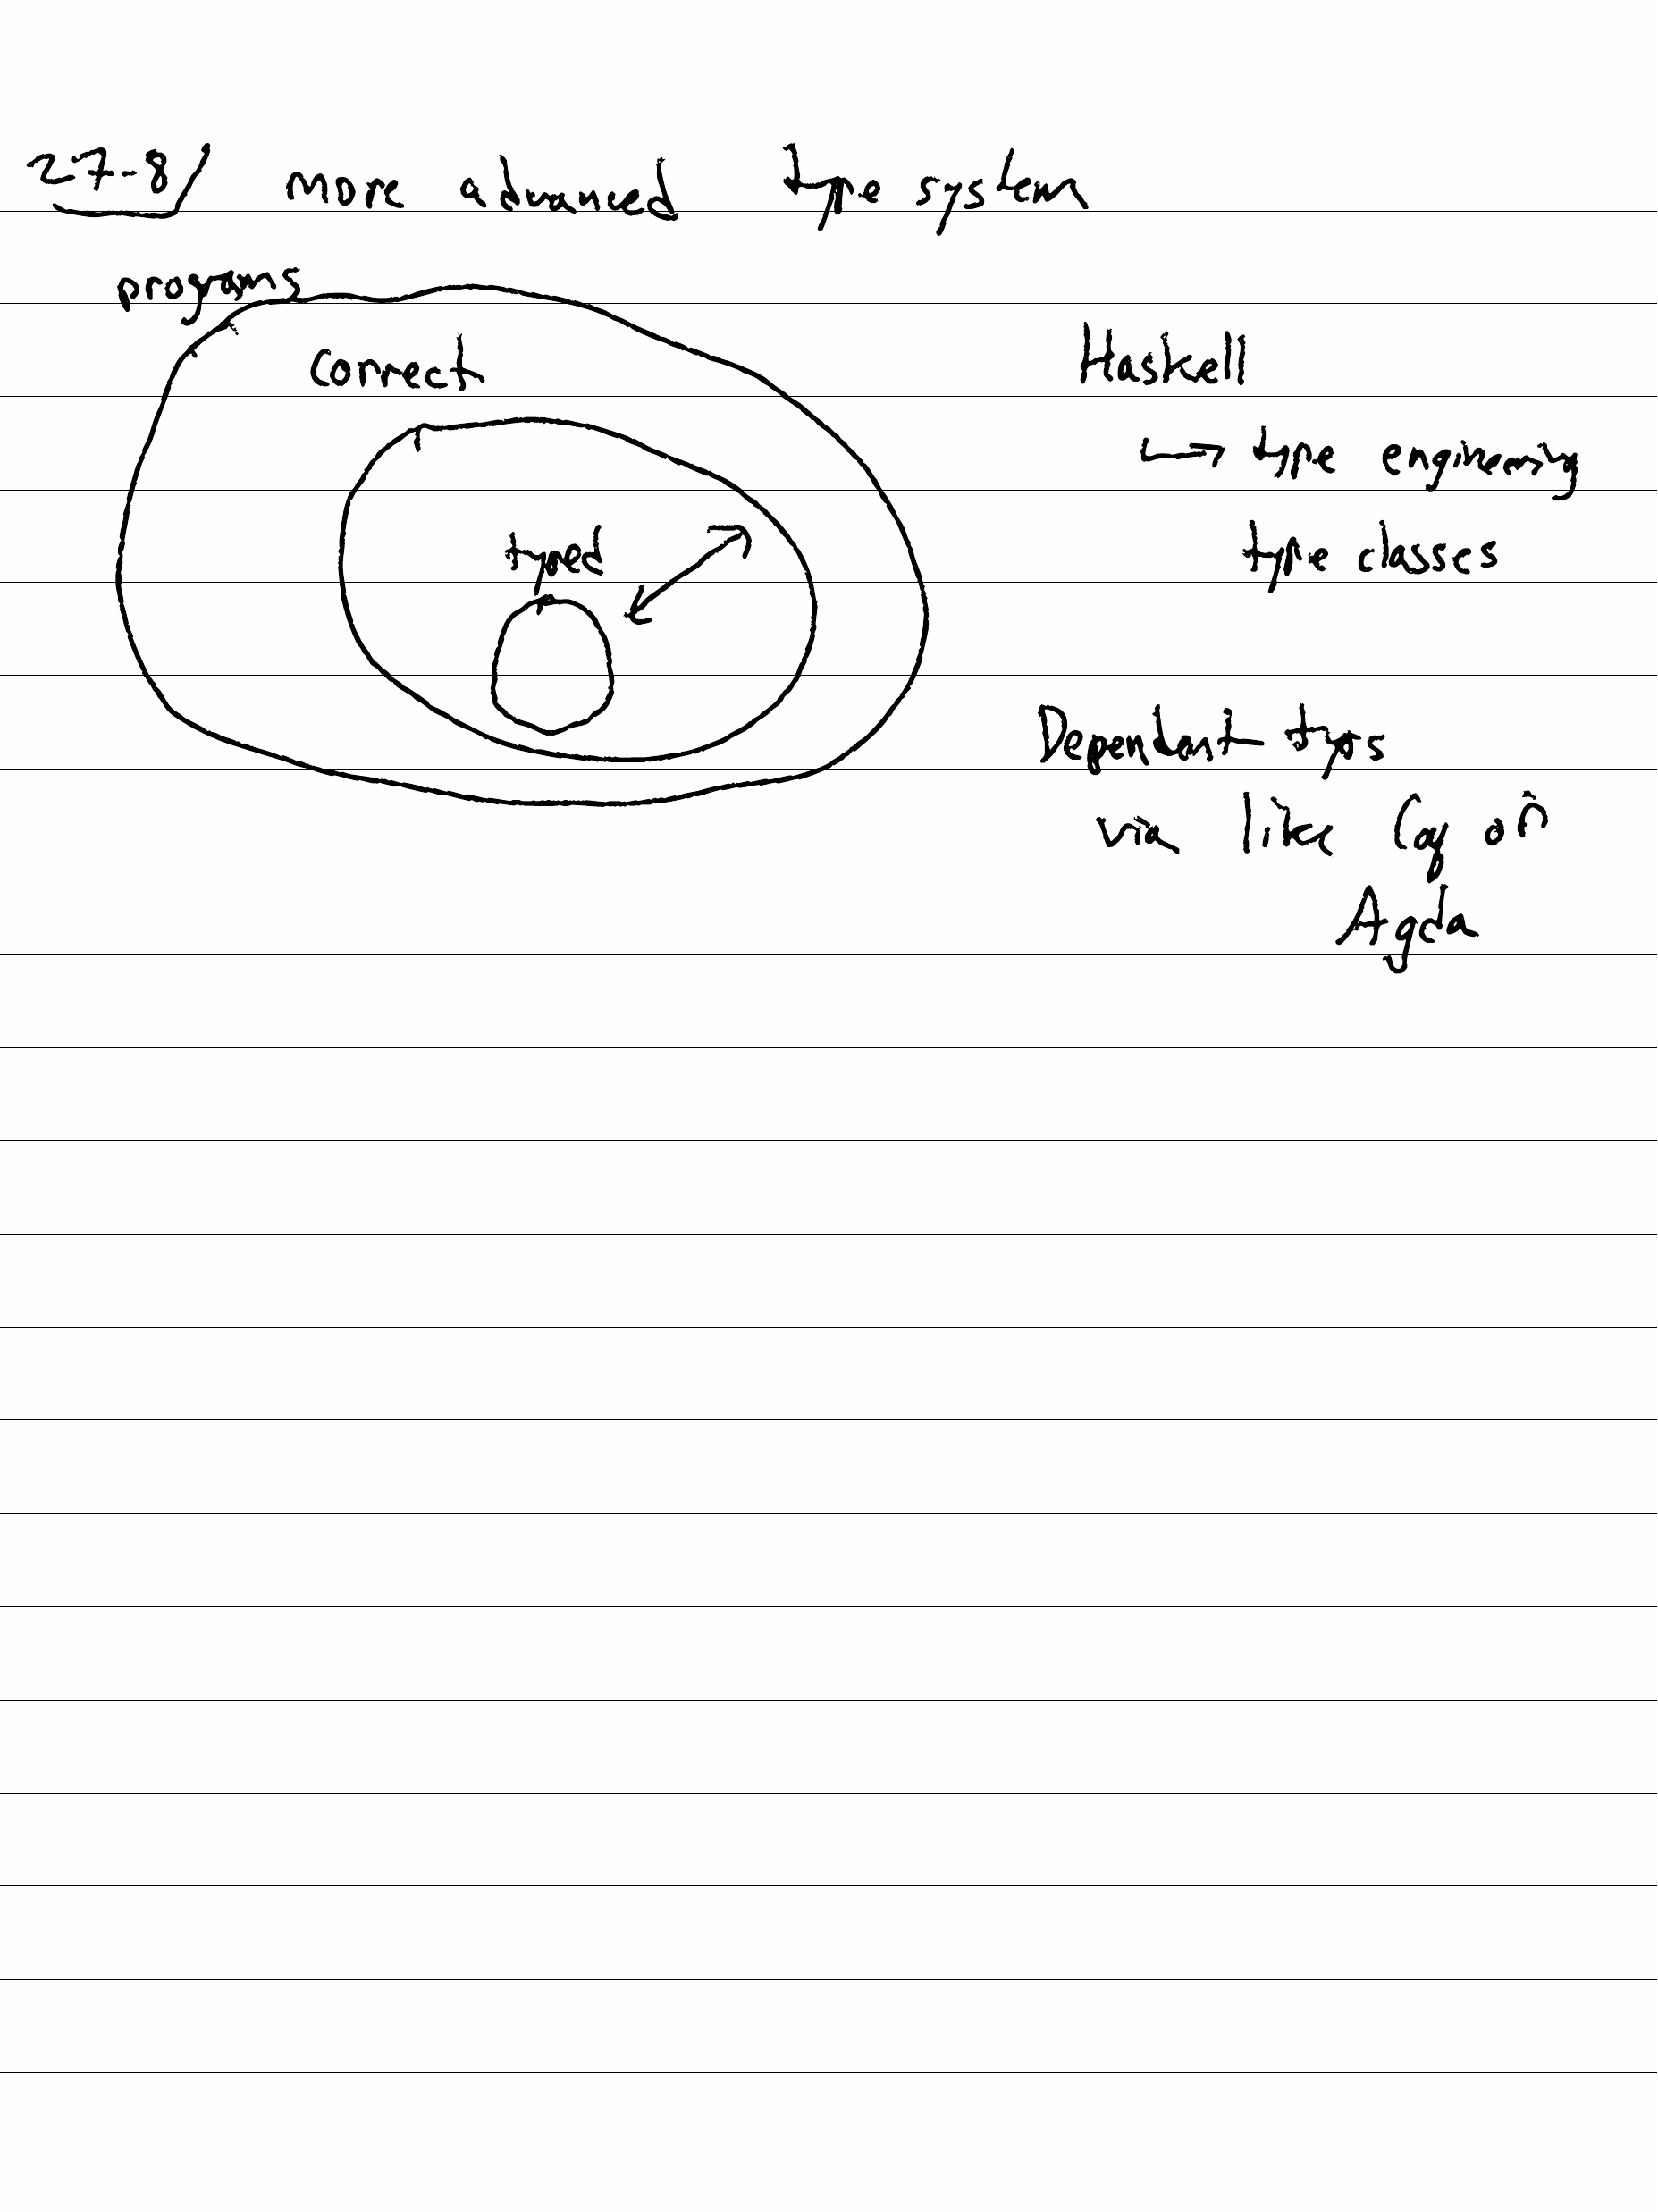 27-8/ more advanced type system
programs
correct
typed
Haskell
↳ type engineering
type classes
Dependant types
via like Coq or
Agda